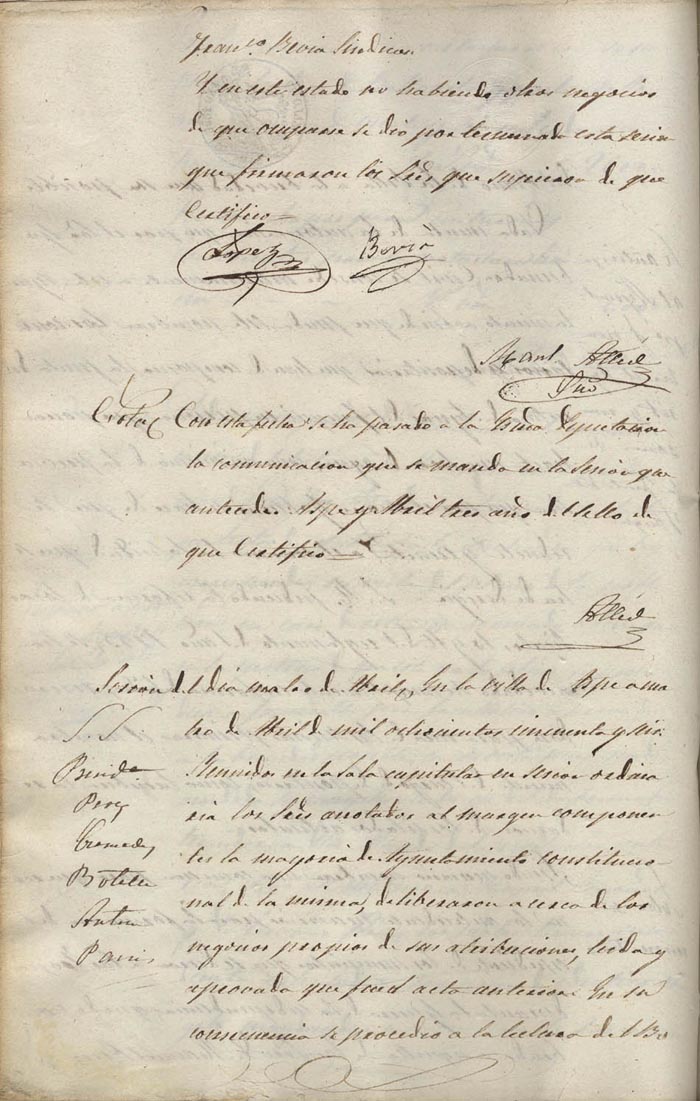 Fran.co Bevia Sindico.
Y en este estado no habiendo otros negocios
de que ocuparse se dio por terminada esta sesion
que firmaron los Sres que supieron de que
Certifico=
Lopez Bevia
Man.l
Srio
Nota Con esta fecha se ha pasado a la Diputacion
la comunicacion que se manda en la sesion que
antecede. Aspe y Abril tres año del sello de
que Certifico=
Sesion del dia cuatro de Abril, En la Villa de Aspe a cua
tro de Abril de mil ochocientos cincuenta y seis:
Reunidos en la sala capitular en sesion ordina
ria los Sres anotados al margen componen
tes la mayoria de Ayuntamiento constitucio
nal de la misma, deliberaron acerca de los
negocios propios de sus atribuciones, leida y
aprovada que fue el acta anterior. En su
consecuencia se procedio a la lectura del Bo
S. S.
Botella
Anton